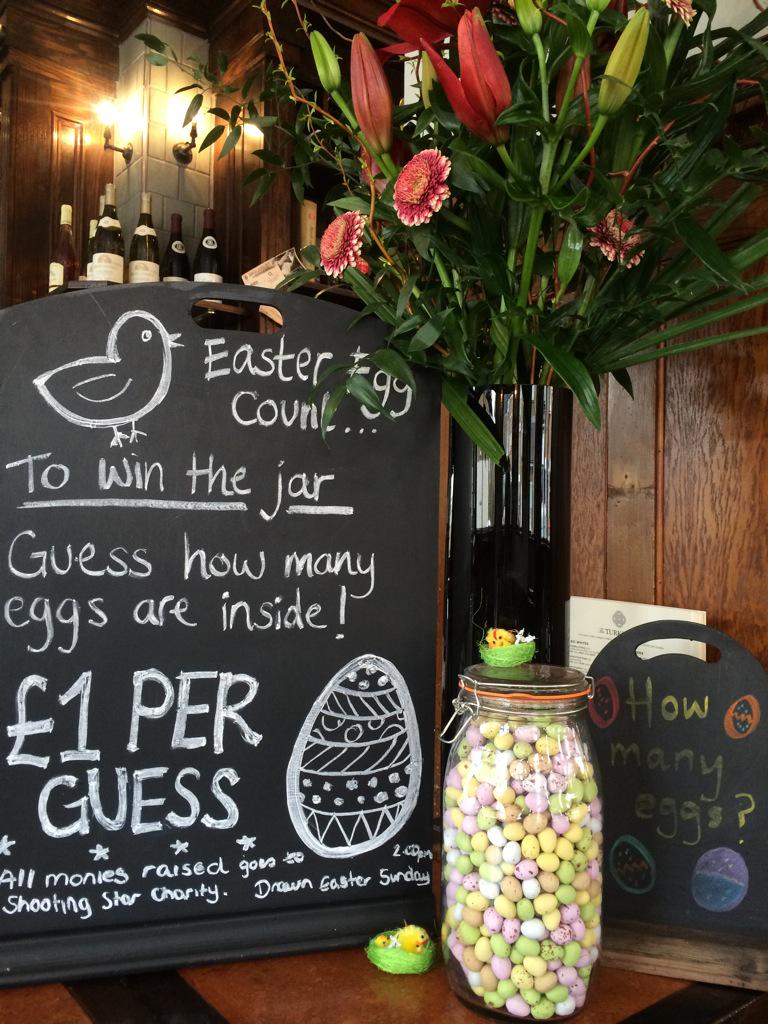 Easter Egg
Count...
To win the jar
Guess how many
eggs are inside!
£1 PER
GUESS
All monies raised goes to
Shooting Star Charity. Drawn Easter Sunday
How
many
eggs?